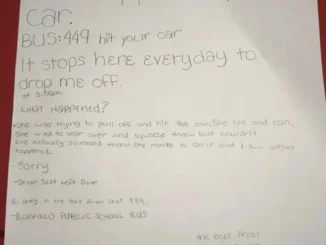 car.
BUS:449 hit your car
It stops here everyday to
drop me off.
at 5:00pm
WHAT HAPPENED?
She was trying to pull off and hit the car. She hit and ran,
She tried to vear over and squeeze threw but couldn't.
She actually squeezed threw she made a dent and I saw what
happened.
-Sorry
-Driver Seat Left Over
a lady in the bus driver seat 449.
-BUFFALO PUBLIC SCHOOL BUS
the bus